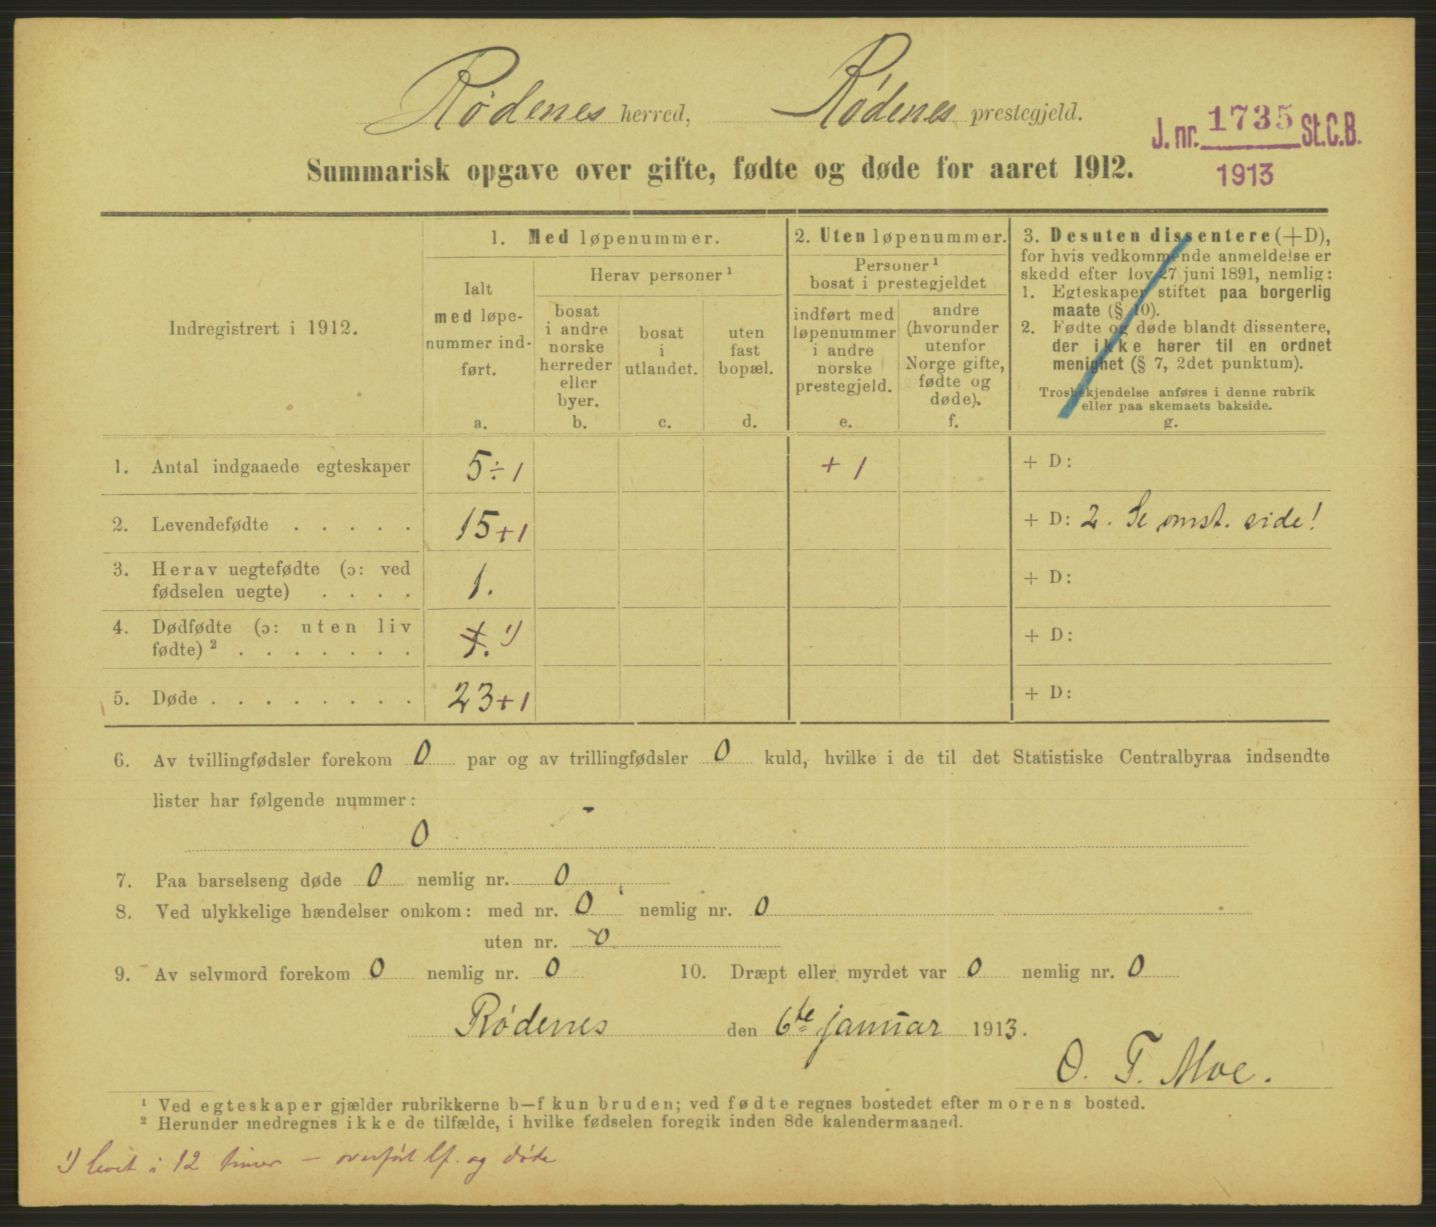 Rødenes herred, Rødenes prestegjeld.
J. nr. 1735 St.C.B.
1913
Summarisk opgave over gifte, fødte og døde for aaret 1912.
Indregistrert i 1912.
1. Med løpenummer.
Ialt
med løpe-
nummer ind-
ført.
a.
Herav personer¹
bosat
i andre
norske
herreder
eller
byer.
b.
bosat
i
utlandet.
c.
uten
fast
bopæl.
d.
2. Uten løpenummer.
Personer¹
bosat i prestegjeldet
indført med
løpenummer
i andre
norske
prestegjeld.
e.
andre
(hvorunder
utenfor
Norge gifte,
fødte og
døde).
f.
3. Desuten dissentere (+D),
for hvis vedkommende anmeldelse er
skedd efter lov 27 juni 1891, nemlig:
1. Egteskaper stiftet paa borgerlig
maate (§ 10).
2. Fødte og døde blandt dissentere,
der ikke hører til en ordnet
menighet (§ 7, 2det punktum).
Trosbekjendelse anføres i denne rubrik
eller paa skemaets bakside.
g.
1. Antal indgaaede egteskaper 5 ÷ 1 + 1 + D:
2. Levendefødte . . . . . 15 + 1 + D: 2. Se omst. side!
3. Herav uegtefødte (ɔ: ved
fødselen uegte) . . . . 1. + D:
4. Dødfødte (ɔ: uten liv
fødte)² . . . . . . . 1. ¹) + D:
5. Døde . . . . . . . . 23 + 1 + D:
6. Av tvillingfødsler forekom 0 par og av trillingfødsler 0 kuld, hvilke i de til det Statistiske Centralbyraa indsendte
lister har følgende nummer:
0
7. Paa barselseng døde 0 nemlig nr. 0
8. Ved ulykkelige hændelser omkom: med nr. 0 nemlig nr. 0
uten nr. 0
9. Av selvmord forekom 0 nemlig nr. 0 10. Dræpt eller myrdet var 0 nemlig nr. 0
Rødenes den 6te januar 1913.
O. T. Moe.
¹ Ved egteskaper gjælder rubrikkerne b—f kun bruden; ved fødte regnes bostedet efter morens bosted.
² Herunder medregnes ikke de tilfælde, i hvilke fødselen foregik inden 8de kalendermaaned.
¹) levet i 12 timer — overført lf. og døde